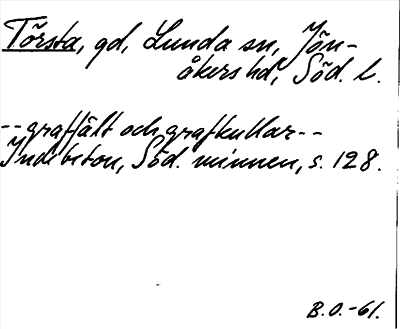 Törsta, gd, Lunda sn, Jön-
åkers hd, Söd. l.
-- graffält och grafkullar --
Indebetou, Söd. minnen, s. 128.
B.O.-61.